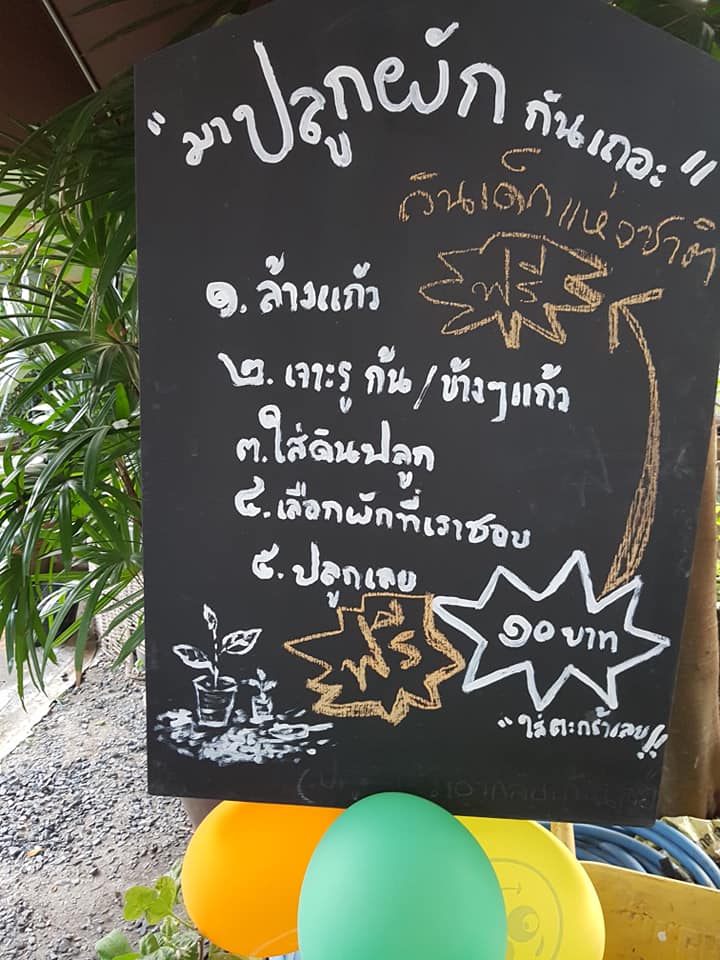 "มาปลูกผัก กันเถอะ"
วันเด็กแห่งชาติ
ฟรี
๑. ล้างแก้ว
๒. เจาะรู ก้น/ข้างๆแก้ว
๓. ใส่ดินปลูก
๔. เลือกผักที่เราชอบ
๕. ปลูกเลย
ฟรี
๑๐ บาท
"ใส่ตะกร้าเลย!!